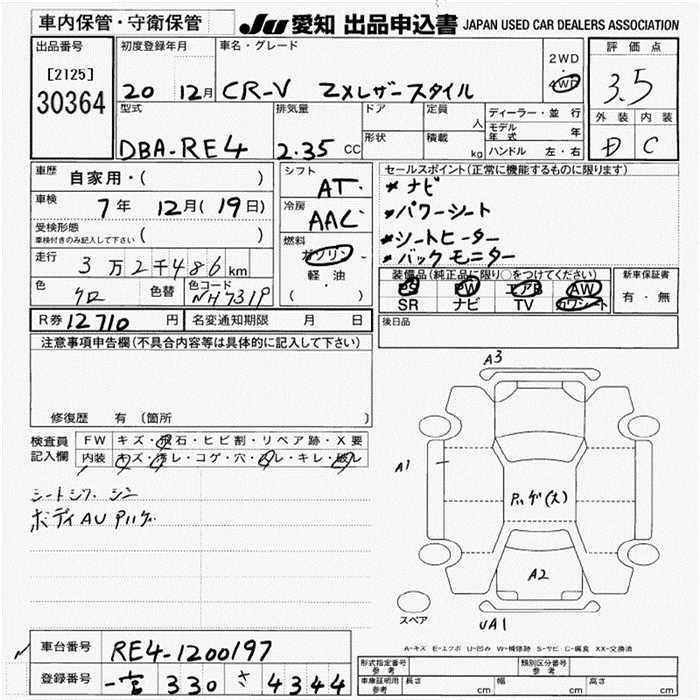 車内保管・守衛保管
JU 愛知 出品申込書 JAPAN USED CAR DEALERS ASSOCIATION
出品番号
[2125]
30364
初度登録年月
20 12月
車名・グレード
CR-V ZXレザースタイル
2WD
4WD
評価点
3.5
外装 内装
D C
型式
DBA-RE4
排気量
2.35 CC
ドア
形状
定員 人
積載 kg
ディーラー・並行
モデル年式 年
ハンドル 左・右
車歴 自家用・( )
車検 7年 12月(19日)
受検形態
車検付きのみ記入して下さい ( )
走行 3万2千486km
色 クロ 色替 色コード NH731P
シフト AT
冷房 AAC
燃料
ガソリン・
軽油
( )
セールスポイント(正常に機能するものに限ります)
*ナビ
*パワーシート
*シートヒーター
*バックモニター
装備品(純正品に限り○をつけてください)
PS PW エアB AW
SR ナビ TV カワシート
新車保証書
有・無
R券 12710円 名変通知期限 月 日
後日品
注意事項申告欄(不具合内容等は具体的に記入して下さい)
修復歴 有 〔箇所 〕
検査員記入欄
FW キズ・飛石・ヒビ割・リペア跡・X要
内装 キズ・汚レ・コゲ・穴・スレ・キレ・破レ
シートシワ シミ
ボディAUPハゲ
A3
A1
Pハゲ(大)
A2
UA1
スペア
A-キズ E-エクボ U-凹み W-補修跡 S-サビ C-腐食 XX-交換済
車台番号 RE4-1200197
登録番号 一宮 330 さ 4344
形式指定番号 参考
類別区分番号 参考
車庫証明用 参考
長さ cm 幅 cm 高さ cm